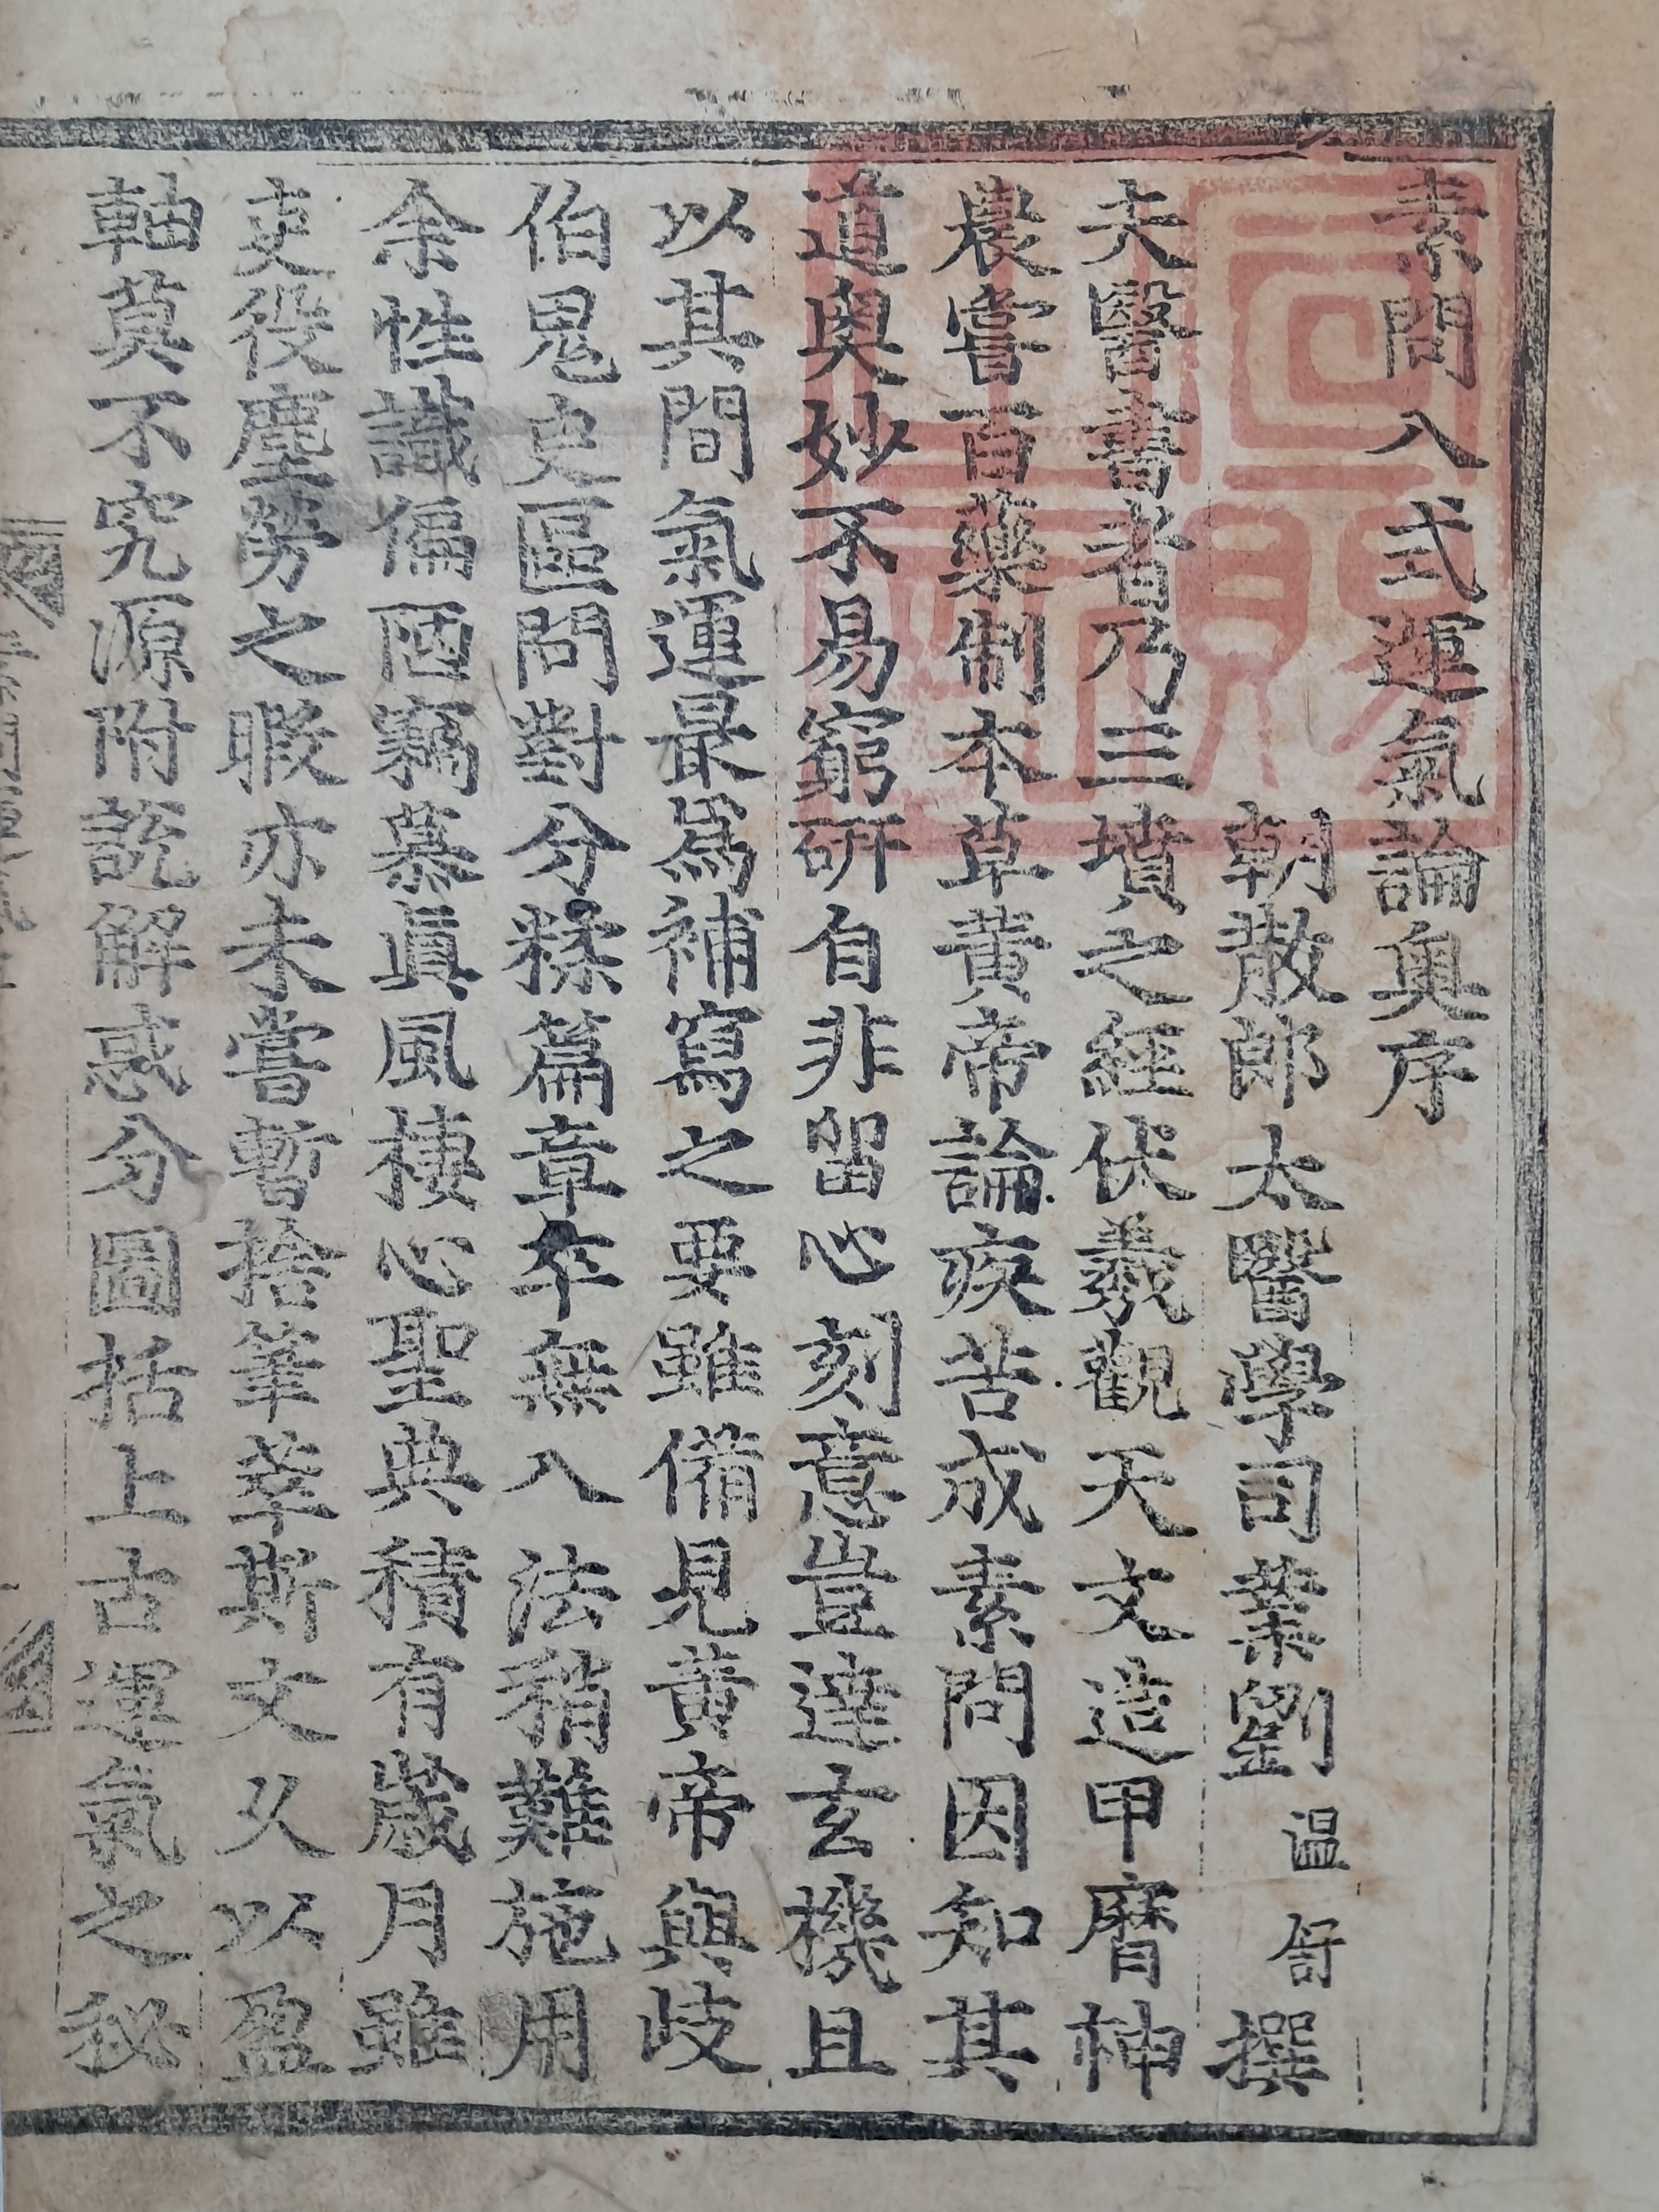 素問入式運氣論奧序
朝散郎太醫學司業劉溫舒撰
夫醫書者乃三墳之經伏羲觀天文造甲曆神
農嘗百藥制本草黃帝論疾苦成素問因知其
道奧妙不易窮研自非留心刻意豈達玄機且
以其間氣運最爲補寫之要雖備見黃帝與歧
伯鬼臾區問對分糅篇章卒無入法稍難施用
余性識偏陋竊慕眞風棲心聖典積有歲月雖
吏役塵勞之暇亦未嘗暫捨筆莘斯文乆以盈
軸莫不究源附說解惑分圖括上古運氣之秘